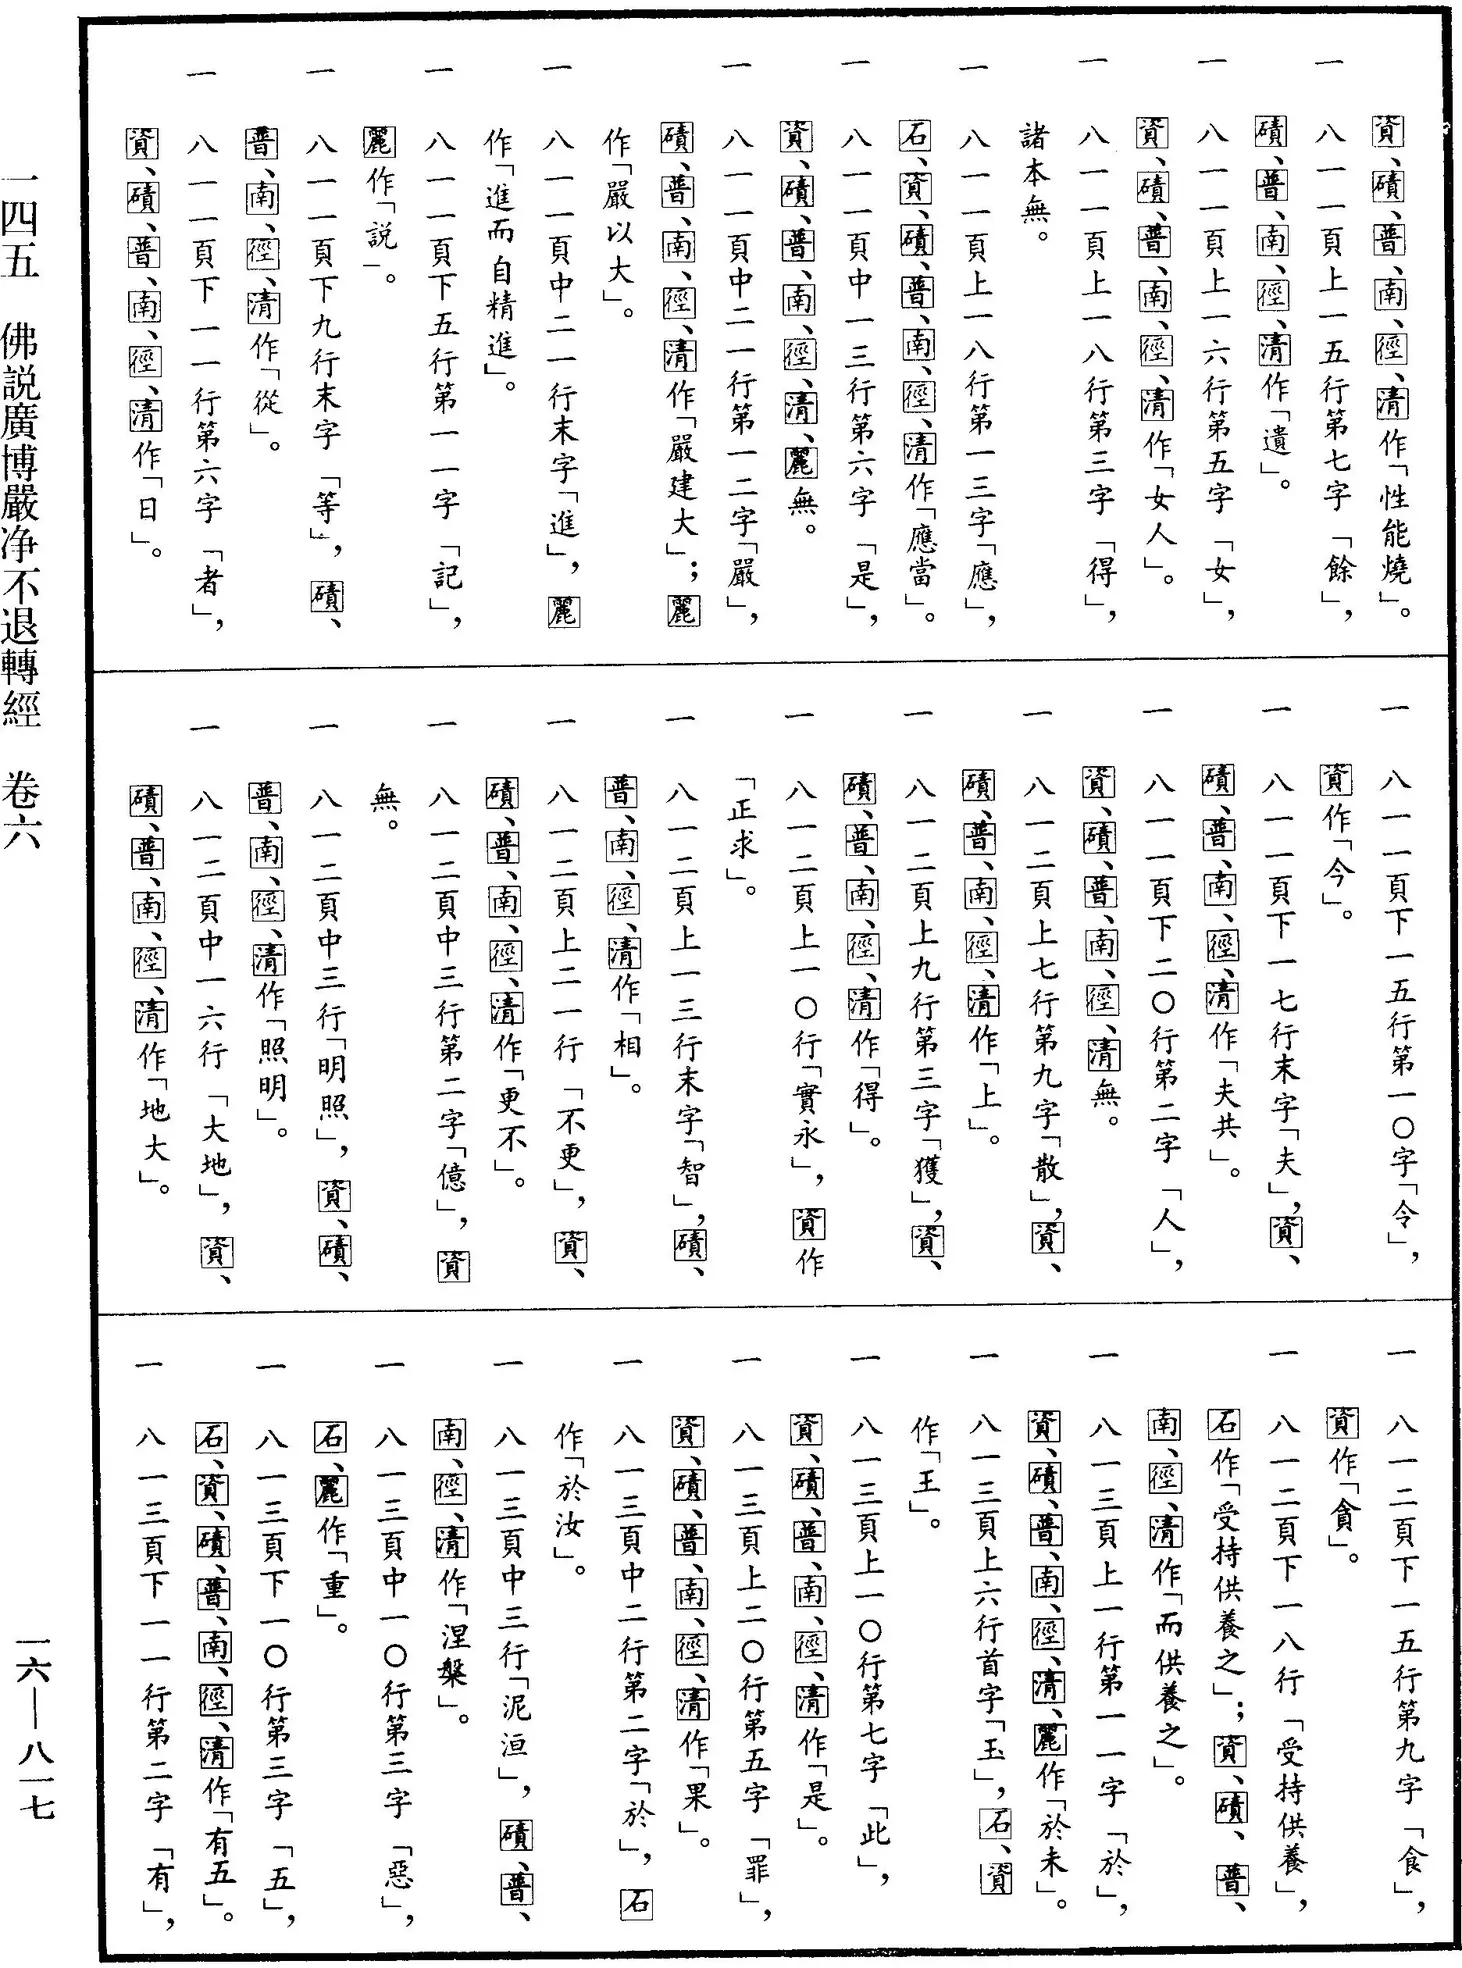 資、磧、普、南、徑、清作「性能燒」。
一 八一一頁上一五行第七字「餘」，
磧、普、南、徑、清作「遺」。
一 八一一頁上一六行第五字「女」，
資、磧、普、南、徑、清作「女人」。
一 八一一頁上一八行第三字「得」，
諸本無。
一 八一一頁上一八行第一三字「應」，
石、資、磧、普、南、徑、清作「應當」。
一 八一一頁中一三行第六字「是」，
資、磧、普、南、徑、清、麗無。
一 八一一頁中二一行第一二字「嚴」，
磧、普、南、徑、清作「嚴建大」；麗
作「嚴以大」。
一 八一一頁中二一行末字「進」，麗
作「進而自精進」。
一 八一一頁下五行第一一字「記」，
麗作「説」。
一 八一一頁下九行末字「等」，磧、
普、南、徑、清作「從」。
一 八一一頁下一一行第六字「者」，
資、磧、普、南、徑、清作「日」。
一 八一一頁下一五行第一〇字「令」，
資作「今」。
一 八一一頁下一七行末字「夫」，資、
磧、普、南、徑、清作「夫共」。
一 八一一頁下二〇行第二字「人」，
資、磧、普、南、徑、清無。
一 八一二頁上七行第九字「散」，資、
磧、普、南、徑、清作「上」。
一 八一二頁上九行第三字「獲」，資、
磧、普、南、徑、清作「得」。
一 八一二頁上一〇行「實永」，資作
「正求」。
一 八一二頁上一三行末字「智」，磧、
普、南、徑、清作「相」。
一 八一二頁上二一行「不更」，資、
磧、普、南、徑、清作「更不」。
一 八一二頁中三行第二字「億」，資
無。
一 八一二頁中三行「明照」，資、磧、
普、南、徑、清作「照明」。
一 八一二頁中一六行「大地」，資、
磧、普、南、徑、清作「地大」。
一 八一二頁下一五行第九字「食」，
資作「貪」。
一 八一二頁下一八行「受持供養」，
石作「受持供養之」；資、磧、普、
南、徑、清作「而供養之」。
一 八一三頁上一行第一一字「於」，
資、磧、普、南、徑、清、麗作「於未」。
一 八一三頁上六行首字「玉」，石、資
作「王」。
一 八一三頁上一〇行第七字「此」，
資、磧、普、南、徑、清作「是」。
一 八一三頁上二〇行第五字「罪」，
資、磧、普、南、徑、清作「果」。
一 八一三頁中二行第二字「於」，石
作「於汝」。
一 八一三頁中三行「泥洹」，磧、普、
南、徑、清作「涅槃」。
一 八一三頁中一〇行第三字「惡」，
石、麗作「重」。
一 八一三頁下一〇行第三字「五」，
石、資、磧、普、南、徑、清作「有五」。
一 八一三頁下一一行第二字「有」，
一四五 佛説廣博嚴净不退轉經 卷六
一六—八一七